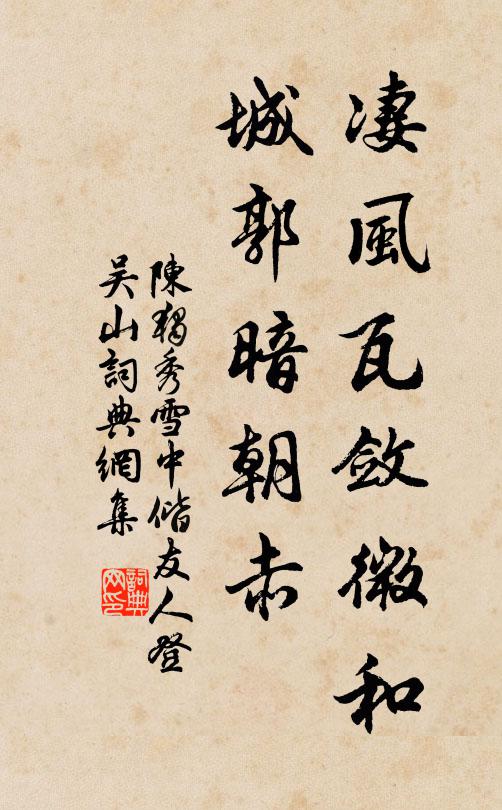 凄風瓦斂微和
城郭暗朝赤
陳獨秀雪中偕友人登
吴山詞典網集
詞典网印